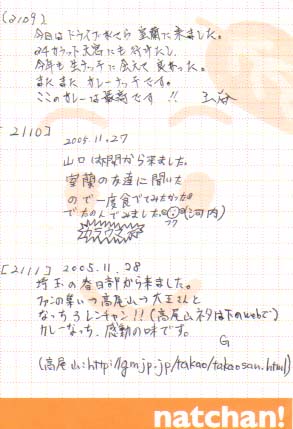 (2109)
今日はドライブがてら室蘭に来ました。
24カラット天宮にも行けたし、
今年も生ナッチに会えて良かった。
またまた カレーナッチです。
ここのカレーは最高です !!
[2110]
2005.11.27
山口 から来ました。
室蘭の友達に聞いた
ので一度食べてみたかった
でたのんでみました。 (河内)
ウラウマ
[2111] 2005.11.28
埼玉の春日部から来ました。
ファンの集い→高尾山→大王さんと
なっち3レンチャン!! (高尾山ネタは下のwebで)
カレーなっち、感動の味です。
G
(高尾山:http://gmjp.jp/takao/takaosan.html)
natchan!